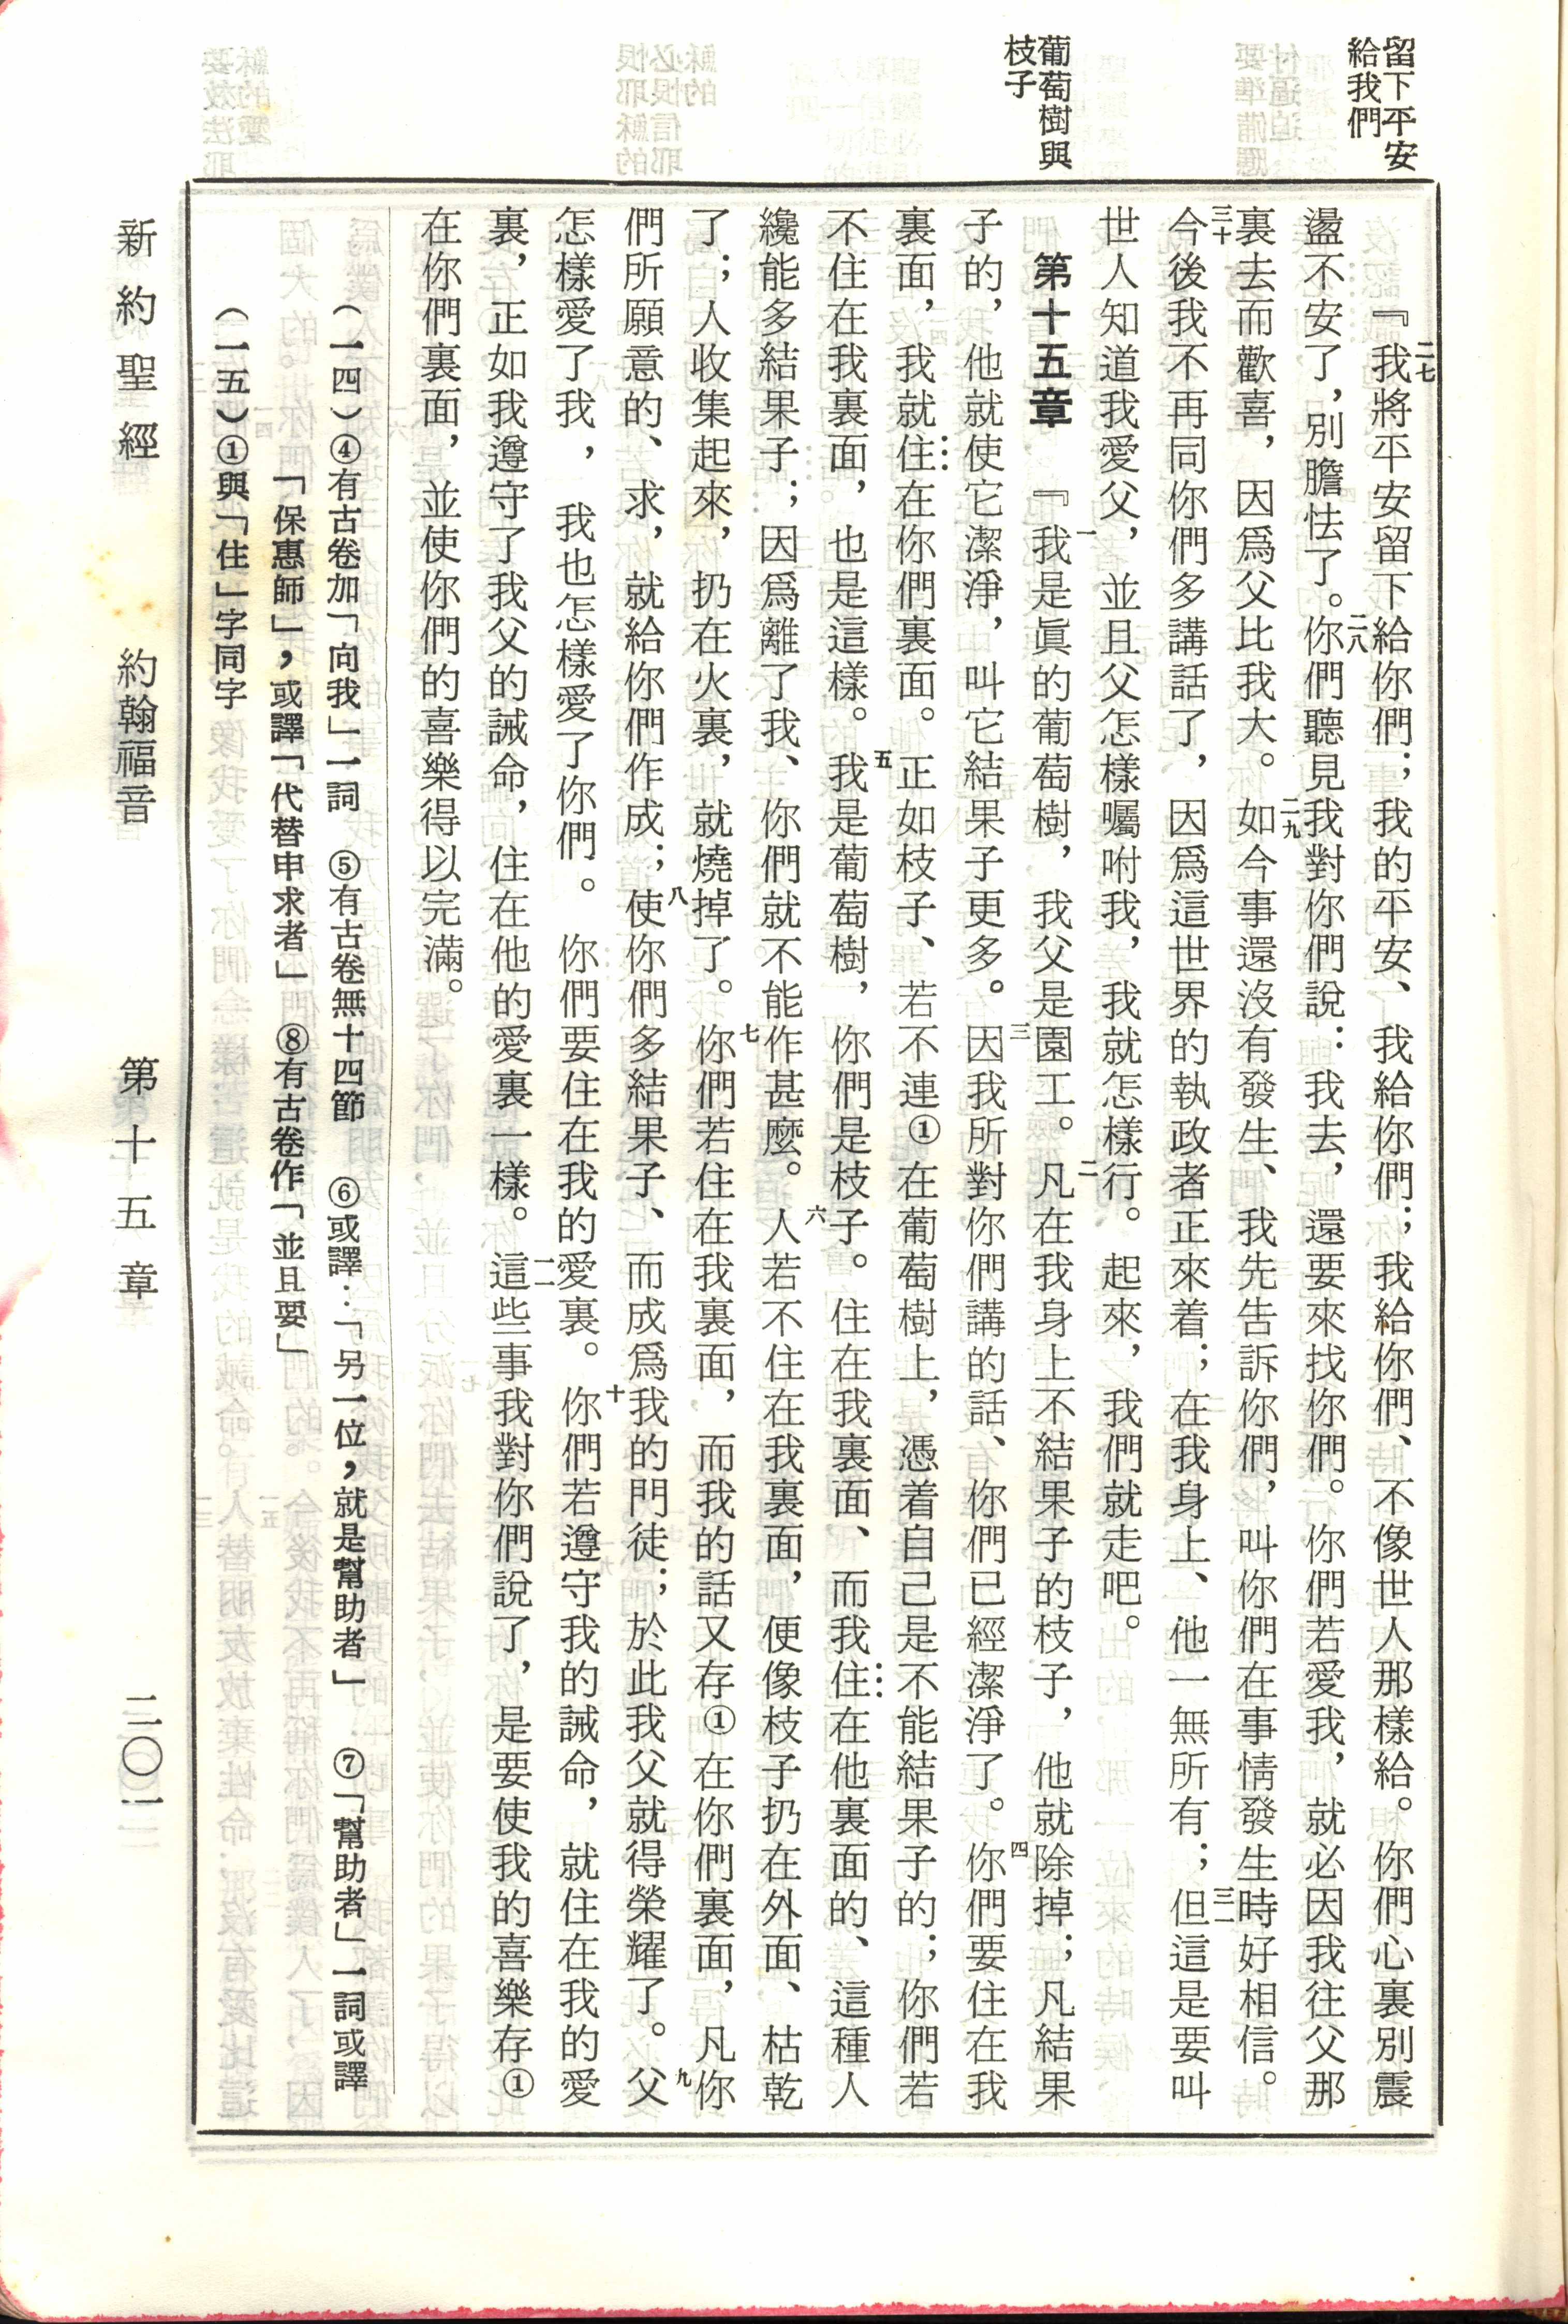 留下平安
給我們
葡萄樹與
枝子
『二七我將平安留下給你們；我的平安、我給你們；我給你們、不像世人那樣給。你們心裏別震
盪不安了，別膽怯了。二八你們聽見我對你們說：我去，還要來找你們。你們若愛我，就必因我往父那
裏去而歡喜，因爲父比我大。二九如今事還沒有發生、我先告訴你們，叫你們在事情發生時好相信。
三十今後我不再同你們多講話了，因爲這世界的執政者正來着；在我身上、他一無所有；三一但這是要叫
世人知道我愛父，並且父怎樣囑咐我，我就怎樣行。起來，我們就走吧。
第十五章　『一我是眞的葡萄樹，我父是園工。二凡在我身上不結果子的枝子，他就除掉；凡結果
子的，他就使它潔淨，叫它結果子更多。三因我所對你們講的話、你們已經潔淨了。四你們要住在我
裏面，我就住在你們裏面。正如枝子、若不連①在葡萄樹上，憑着自己是不能結果子的；你們若
不住在我裏面，也是這樣。五我是葡萄樹，你們是枝子。住在我裏面、而我住在他裏面的、這種人
纔能多結果子；因爲離了我、你們就不能作甚麼。六人若不住在我裏面，便像枝子扔在外面、枯乾
了；人收集起來，扔在火裏，就燒掉了。七你們若住在我裏面，而我的話又存①在你們裏面，凡你
們所願意的、求，就給你們作成；八使你們多結果子、而成爲我的門徒；於此我父就得榮耀了。九父
怎樣愛了我，我也怎樣愛了你們。你們要住在我的愛裏。十你們若遵守我的誡命，就住在我的愛
裏，正如我遵守了我父的誡命，住在他的愛裏一樣。一一這些事我對你們說了，是要使我的喜樂存①
在你們裏面，並使你們的喜樂得以完滿。
（一四）④有古卷加「向我」一詞　⑤有古卷無十四節　⑥或譯：「另一位，就是幫助者」　⑦「幫助者」一詞或譯
「保惠師」，或譯「代替申求者」　⑧有古卷作「並且要」
（一五）①與「住」字同字
新約聖經　約翰福音　第十五章　二〇一